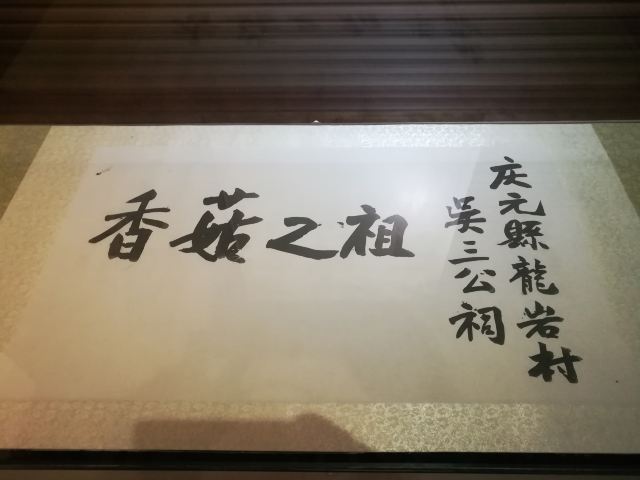 庆元縣龍岩村
吳三公祠
香菇之祖